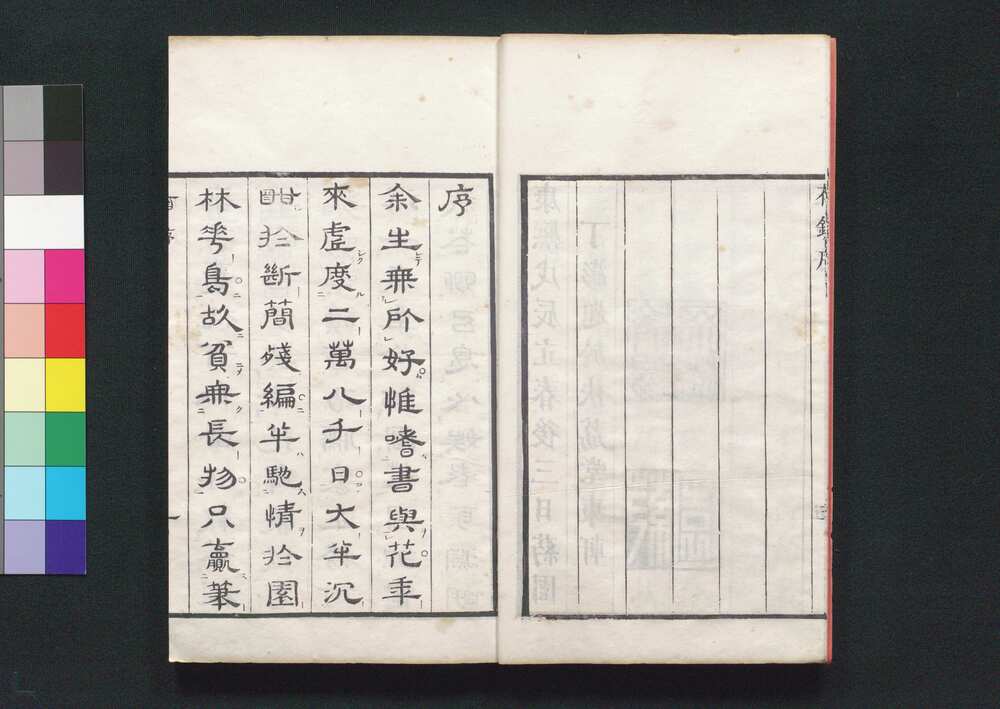 序
余生無所好惟嗜書與花年
來虛度二萬八千日大半沉
酣於斷簡殘編半馳情於園
林花鳥故貧無長物只贏筆